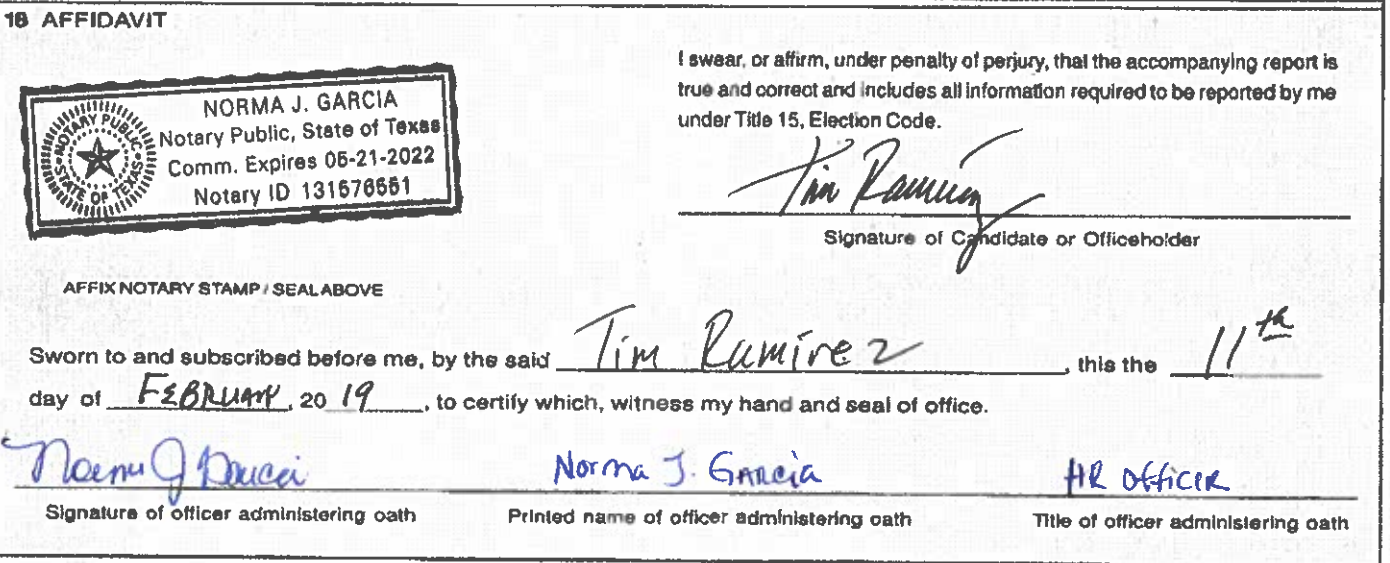 18 AFFIDAVIT
NORMA J. GARCIA
Notary Public, State of Texas
Comm. Expires 05-21-2022
Notary ID 131576551
NOTARY PUBLIC
STATE OF TEXAS
I swear, or affirm, under penalty of perjury, that the accompanying report is
true and correct and includes all information required to be reported by me
under Title 15, Election Code.
Tim Ramirez
Signature of Candidate or Officeholder
AFFIX NOTARY STAMP / SEAL ABOVE
Sworn to and subscribed before me, by the said Tim Ramirez, this the 11th
day of FEBRUARY, 20 19, to certify which, witness my hand and seal of office.
Norma J Garcia Norma J. Garcia HR Officer
Signature of officer administering oath Printed name of officer administering oath Title of officer administering oath